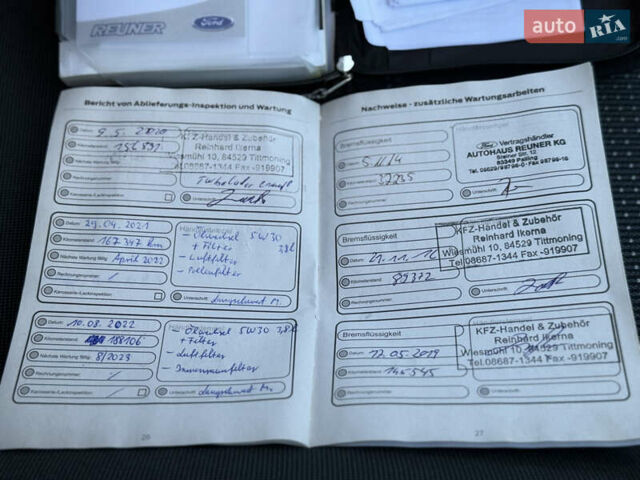 REUNER Ford
auto RIA .com
Bericht von Ablieferungs-Inspektion und Wartung
Datum 9.5.2020
Kilometerstand 156591
Nächste Wartung fällig
Rechnungsnummer
Karosserie-/Lackinspektion
Unterschrift
KFZ-Handel & Zubehör
Reinhard Ikerna
Wiesmühl 10, 84529 Tittmoning
Tel.08687-1344 Fax -919907
Turbolader erneuert
Datum 29.04.2021
Kilometerstand 167 347 km
Nächste Wartung fällig April 2022
Rechnungsnummer /
Karosserie-/Lackinspektion
- Ölwechsel 5W30
+ Filter 3,8 L
- Luftfilter
- Pollenfilter
Unterschrift
Datum 10.08.2022
Kilometerstand 188106
Nächste Wartung fällig 8/2023
Rechnungsnummer /
Karosserie-/Lackinspektion
- Ölwechsel 5W30 3,8L
+ Filter
- Luftfilter
- Innenraumfilter
Unterschrift
26
Nachweise - zusätzliche Wartungsarbeiten
Bremsflüssigkeit
Datum 5.11.14
Kilometerstand 37235
Rechnungsnummer
Ford Vertragshändler
AUTOHAUS REUNER KG
Steiner Str. 12
83349 Palling
Tel. 08629/98798-0 · Fax 98798-16
Unterschrift
Bremsflüssigkeit
Datum 21.11.16
Kilometerstand 89322
Rechnungsnummer
KFZ-Handel & Zubehör
Reinhard Ikerna
Wiesmühl 10, 84529 Tittmoning
Tel.08687-1344 Fax -919907
Unterschrift
Bremsflüssigkeit
Datum 17.05.2019
Kilometerstand 145545
Rechnungsnummer
KFZ-Handel & Zubehör
Reinhard Ikerna
Wiesmühl 10, 84529 Tittmoning
Tel.08687-1344 Fax -919907
Unterschrift
27